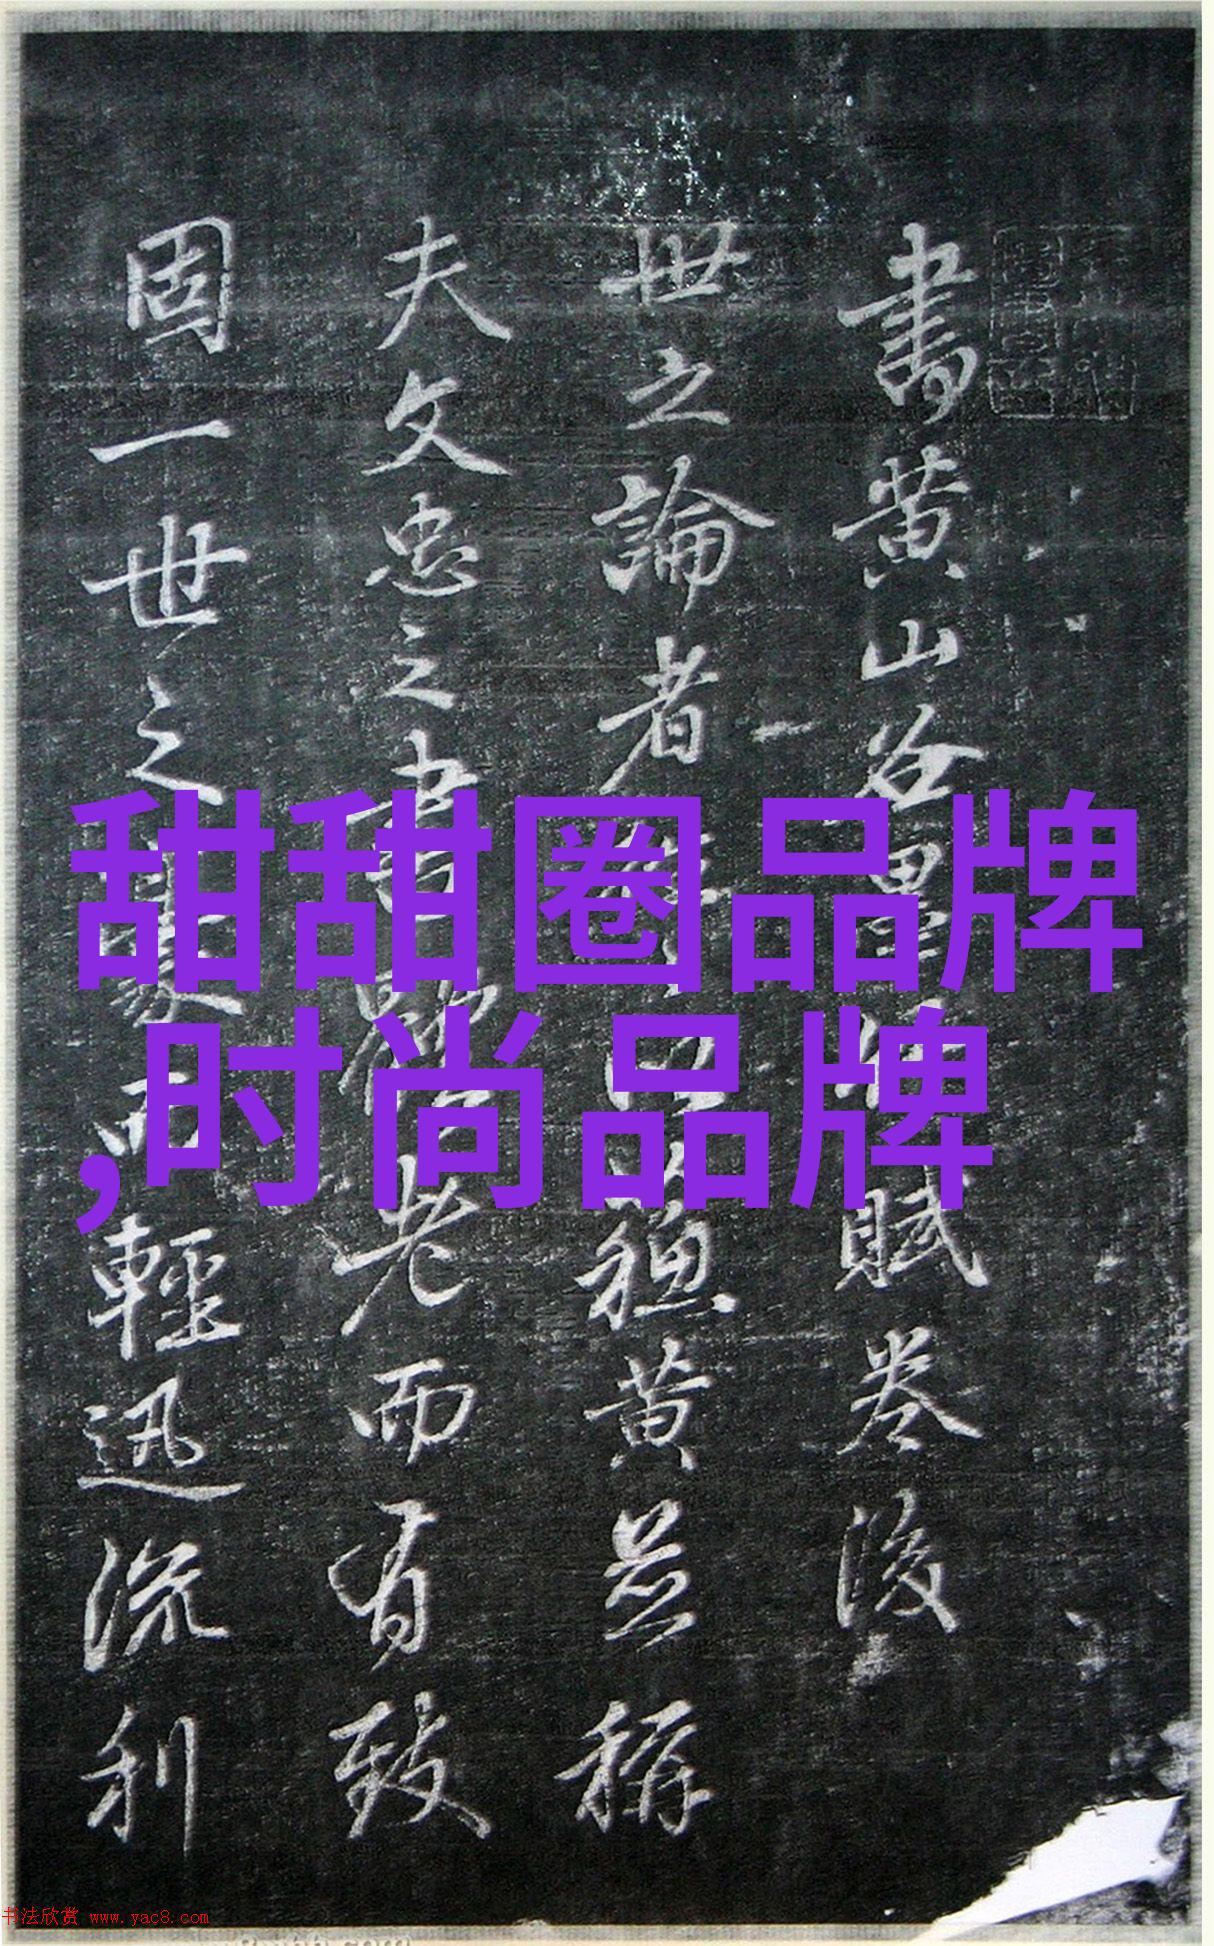 書黄山谷墨賦卷後
世之論者黄並稱
夫文忠之書老而有致
固一世之豪而輕迅流利
甜甜圈品牌
,时尚品牌
书法欣赏 www.yac8.com